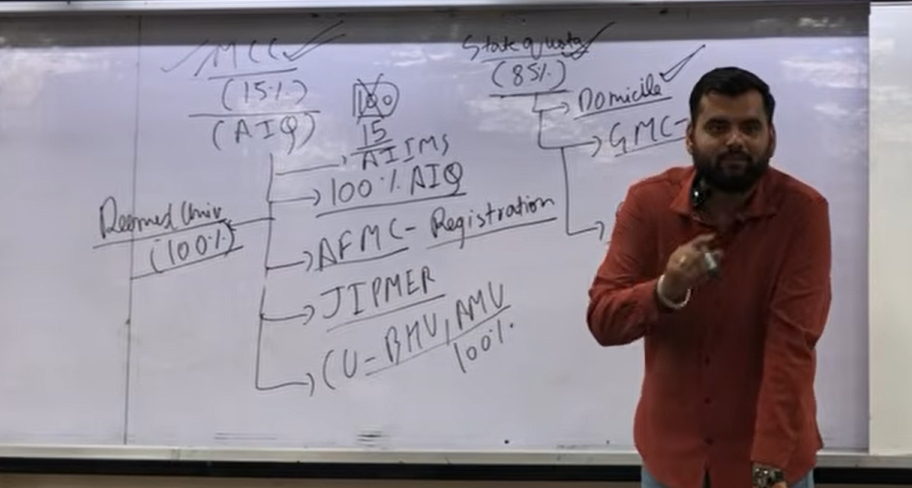 MCC
(15%)
(AIQ)
100
15
AIIMS
100% AIQ
AFMC- Registration
JIPMER
CU-BHU, AMU
100%
Deemed Univ
(100%)
State quota
(85%)
Domicile
GMC-